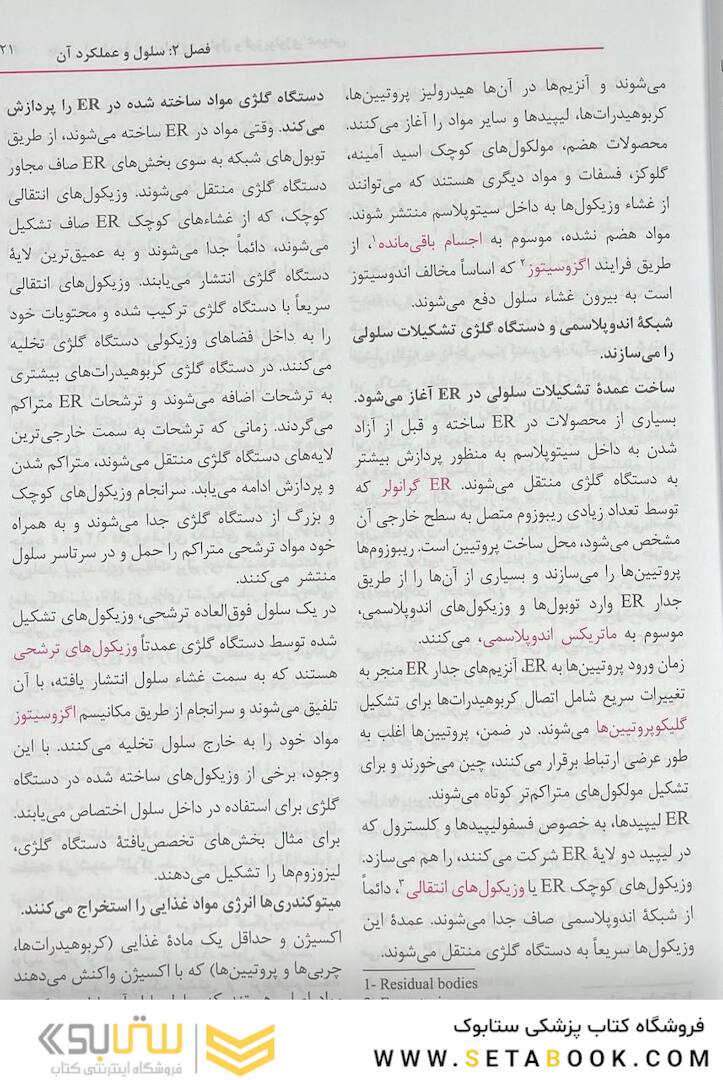 فصل ۲: سلول و عملکرد آن
۲۱
می‌شوند و آنزیم‌ها در آن‌ها هیدرولیز پروتیین‌ها،
کربوهیدرات‌ها، لیپیدها و سایر مواد را آغاز می‌کنند.
محصولات هضم، مولکول‌های کوچک اسید آمینه،
گلوکز، فسفات و مواد دیگری هستند که می‌توانند
از غشاء وزیکول‌ها به داخل سیتوپلاسم منتشر شوند.
مواد هضم نشده، موسوم به اجسام باقی‌مانده۱، از
طریق فرایند اگزوسیتوز۲ که اساساً مخالف اندوسیتوز
است به بیرون غشاء سلول دفع می‌شوند.
شبکهٔ اندوپلاسمی و دستگاه گلژی تشکیلات سلولی
را می‌سازند.
ساخت عمدهٔ تشکیلات سلولی در ER آغاز می‌شود.
بسیاری از محصولات در ER ساخته و قبل از آزاد
شدن به داخل سیتوپلاسم به منظور پردازش بیشتر
به دستگاه گلژی منتقل می‌شوند. ER گرانولر که
توسط تعداد زیادی ریبوزوم متصل به سطح خارجی آن
مشخص می‌شود، محل ساخت پروتیین است. ریبوزوم‌ها
پروتیین‌ها را می‌سازند و بسیاری از آن‌ها را از طریق
جدار ER وارد توبول‌ها و وزیکول‌های اندوپلاسمی،
موسوم به ماتریکس اندوپلاسمی، می‌کنند.
زمان ورود پروتیین‌ها به ER، آنزیم‌های جدار ER منجر به
تغییرات سریع شامل اتصال کربوهیدرات‌ها برای تشکیل
گلیکوپروتیین‌ها می‌شوند. در ضمن، پروتیین‌ها اغلب به
طور عرضی ارتباط برقرار می‌کنند، چین می‌خورند و برای
تشکیل مولکول‌های متراکم‌تر کوتاه می‌شوند.
ER لیپیدها، به خصوص فسفولیپیدها و کلسترول که
در لیپید دو لایهٔ ER شرکت می‌کنند، را هم می‌سازد.
وزیکول‌های کوچک ER یا وزیکول‌های انتقالی۳، دائماً
از شبکهٔ اندوپلاسمی صاف جدا می‌شوند. عمدهٔ این
وزیکول‌ها سریعاً به دستگاه گلژی منتقل می‌شوند.
1- Residual bodies
دستگاه گلژی مواد ساخته شده در ER را پردازش
می‌کند. وقتی مواد در ER ساخته می‌شوند، از طریق
توبول‌های شبکه به سوی بخش‌های ER صاف مجاور
دستگاه گلژی منتقل می‌شوند. وزیکول‌های انتقالی
کوچک، که از غشاءهای کوچک ER صاف تشکیل
می‌شوند، دائماً جدا می‌شوند و به عمیق‌ترین لایهٔ
دستگاه گلژی انتشار می‌یابند. وزیکول‌های انتقالی
سریعاً با دستگاه گلژی ترکیب شده و محتویات خود
را به داخل فضاهای وزیکولی دستگاه گلژی تخلیه
می‌کنند. در دستگاه گلژی کربوهیدرات‌های بیشتری
به ترشحات اضافه می‌شوند و ترشحات ER متراکم
می‌گردند. زمانی که ترشحات به سمت خارجی‌ترین
لایه‌های دستگاه گلژی منتقل می‌شوند، متراکم شدن
و پردازش ادامه می‌یابد. سرانجام وزیکول‌های کوچک
و بزرگ از دستگاه گلژی جدا می‌شوند و به همراه
خود مواد ترشحی متراکم را حمل و در سرتاسر سلول
منتشر می‌کنند.
در یک سلول فوق‌العاده ترشحی، وزیکول‌های تشکیل
شده توسط دستگاه گلژی عمدتاً وزیکول‌های ترشحی
هستند که به سمت غشاء سلول انتشار یافته، با آن
تلفیق می‌شوند و سرانجام از طریق مکانیسم اگزوسیتوز
مواد خود را به خارج سلول تخلیه می‌کنند. با این
وجود، برخی از وزیکول‌های ساخته شده در دستگاه
گلژی برای استفاده در داخل سلول اختصاص می‌یابند.
برای مثال بخش‌های تخصص‌یافتهٔ دستگاه گلژی،
لیزوزوم‌ها را تشکیل می‌دهند.
میتوکندری‌ها انرژی مواد غذایی را استخراج می‌کنند.
اکسیژن و حداقل یک مادهٔ غذایی (کربوهیدرات‌ها،
چربی‌ها و پروتیین‌ها) که با اکسیژن واکنش می‌دهند
فروشگاه کتاب پزشکی ستابوک
WWW.SETABOOK.COM
ستابوک
فروشگاه اینترنتی کتاب